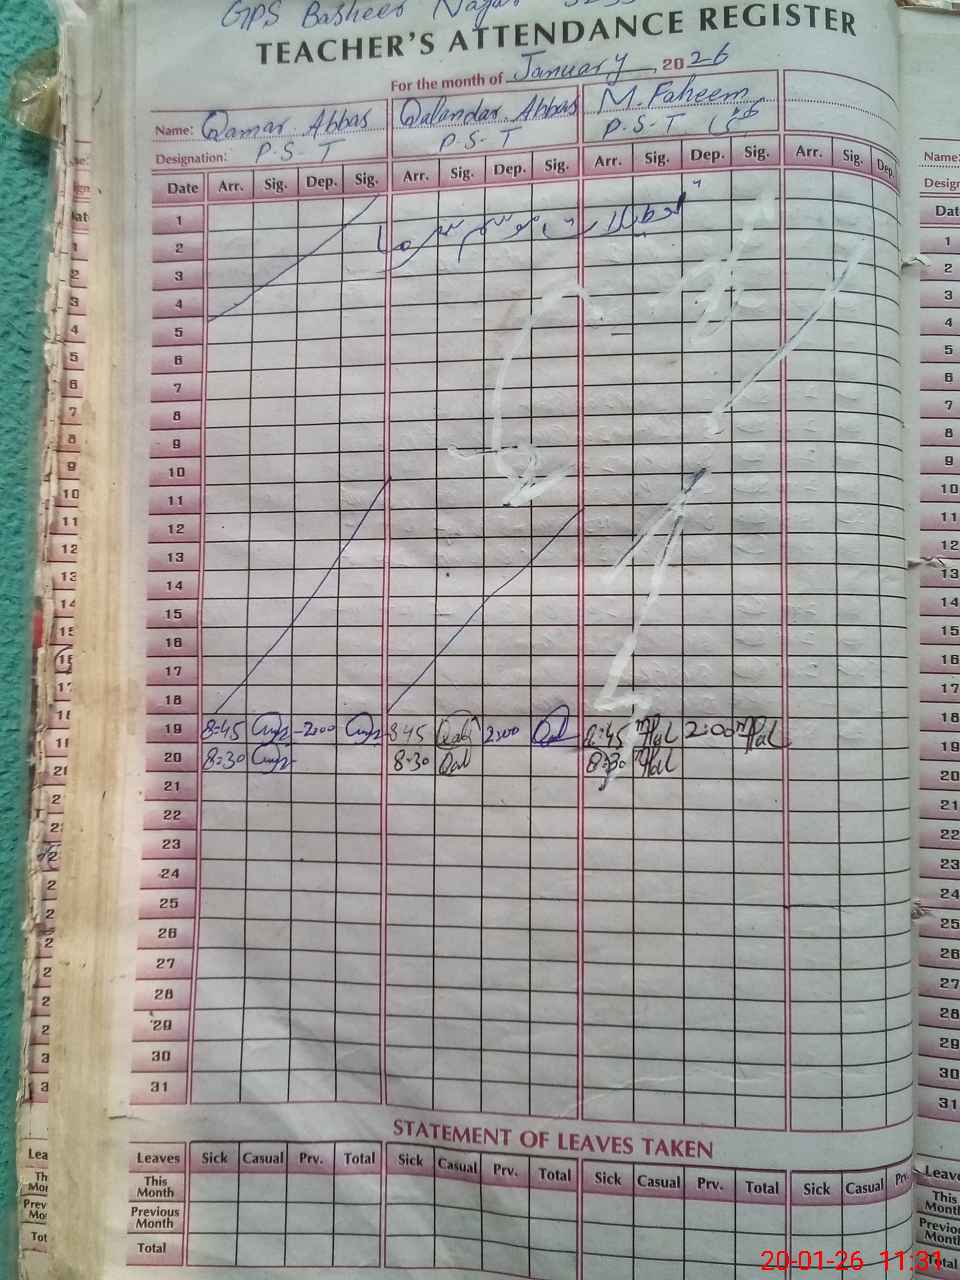 GPS Basheer Nagar
TEACHER'S ATTENDANCE REGISTER
For the month of January 2026
Name: Qamar Abbas Qalandar Abbas M. Faheem
Designation: P.S.T P.S.T P.S.T
Date Arr. Sig. Dep. Sig. Arr. Sig. Dep. Sig. Arr. Sig. Dep. Sig. Arr. Sig. Dep.
1
2
3
4
5
6
7
8
9
10
11
12
13
14
15
16
17
18
19 8:45 2:00 8:45 Qal 2:00 Qal 8:45 2:00
20 8:30 8:30 Qal 8:30
21
22
23
24
25
26
27
28
29
30
31
STATEMENT OF LEAVES TAKEN
Leaves Sick Casual Prv. Total Sick Casual Prv. Total Sick Casual Prv. Total Sick Casual Prv.
This Month
Previous Month
Total
Name:
1
2
3
4
5
6
7
8
9
10
11
12
13
14
15
16
17
18
19
20
21
22
23
24
25
26
27
28
29
30
31
This
Total
20-01-26 11:31